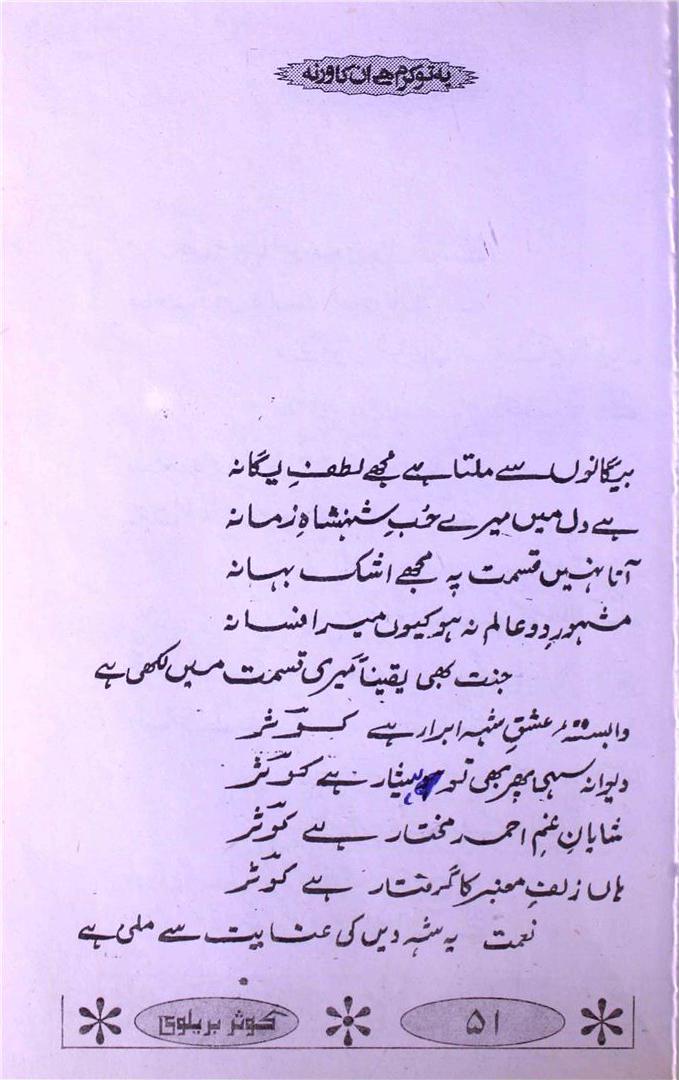 یہ تو کرم ہے ان کا ورنہ
بیگانوں سے ملتا ہے مجھے لطفِ یگانہ
ہے دل میں میرے حُبِ شہنشاہِ زمانہ
آتا نہیں قسمت پہ مجھے اشک بہانہ
مشہورِ دو عالم نہ ہو کیوں میرا فسانہ
جنت بھی یقیناً میری قسمت میں لکھی ہے
وابستۂ عشقِ شہہ ابرار ہے کوثر
دیوانہ سہی پھر بھی تو ہشیار ہے کوثر
شایانِ غمِ احمد مختار ہے کوثر
ہاں زلفِ معنبر کا گرفتار ہے کوثر
نعمت یہ شہہ دیں کی عنایت سے ملی ہے
۵۱
کوثر بریلوی